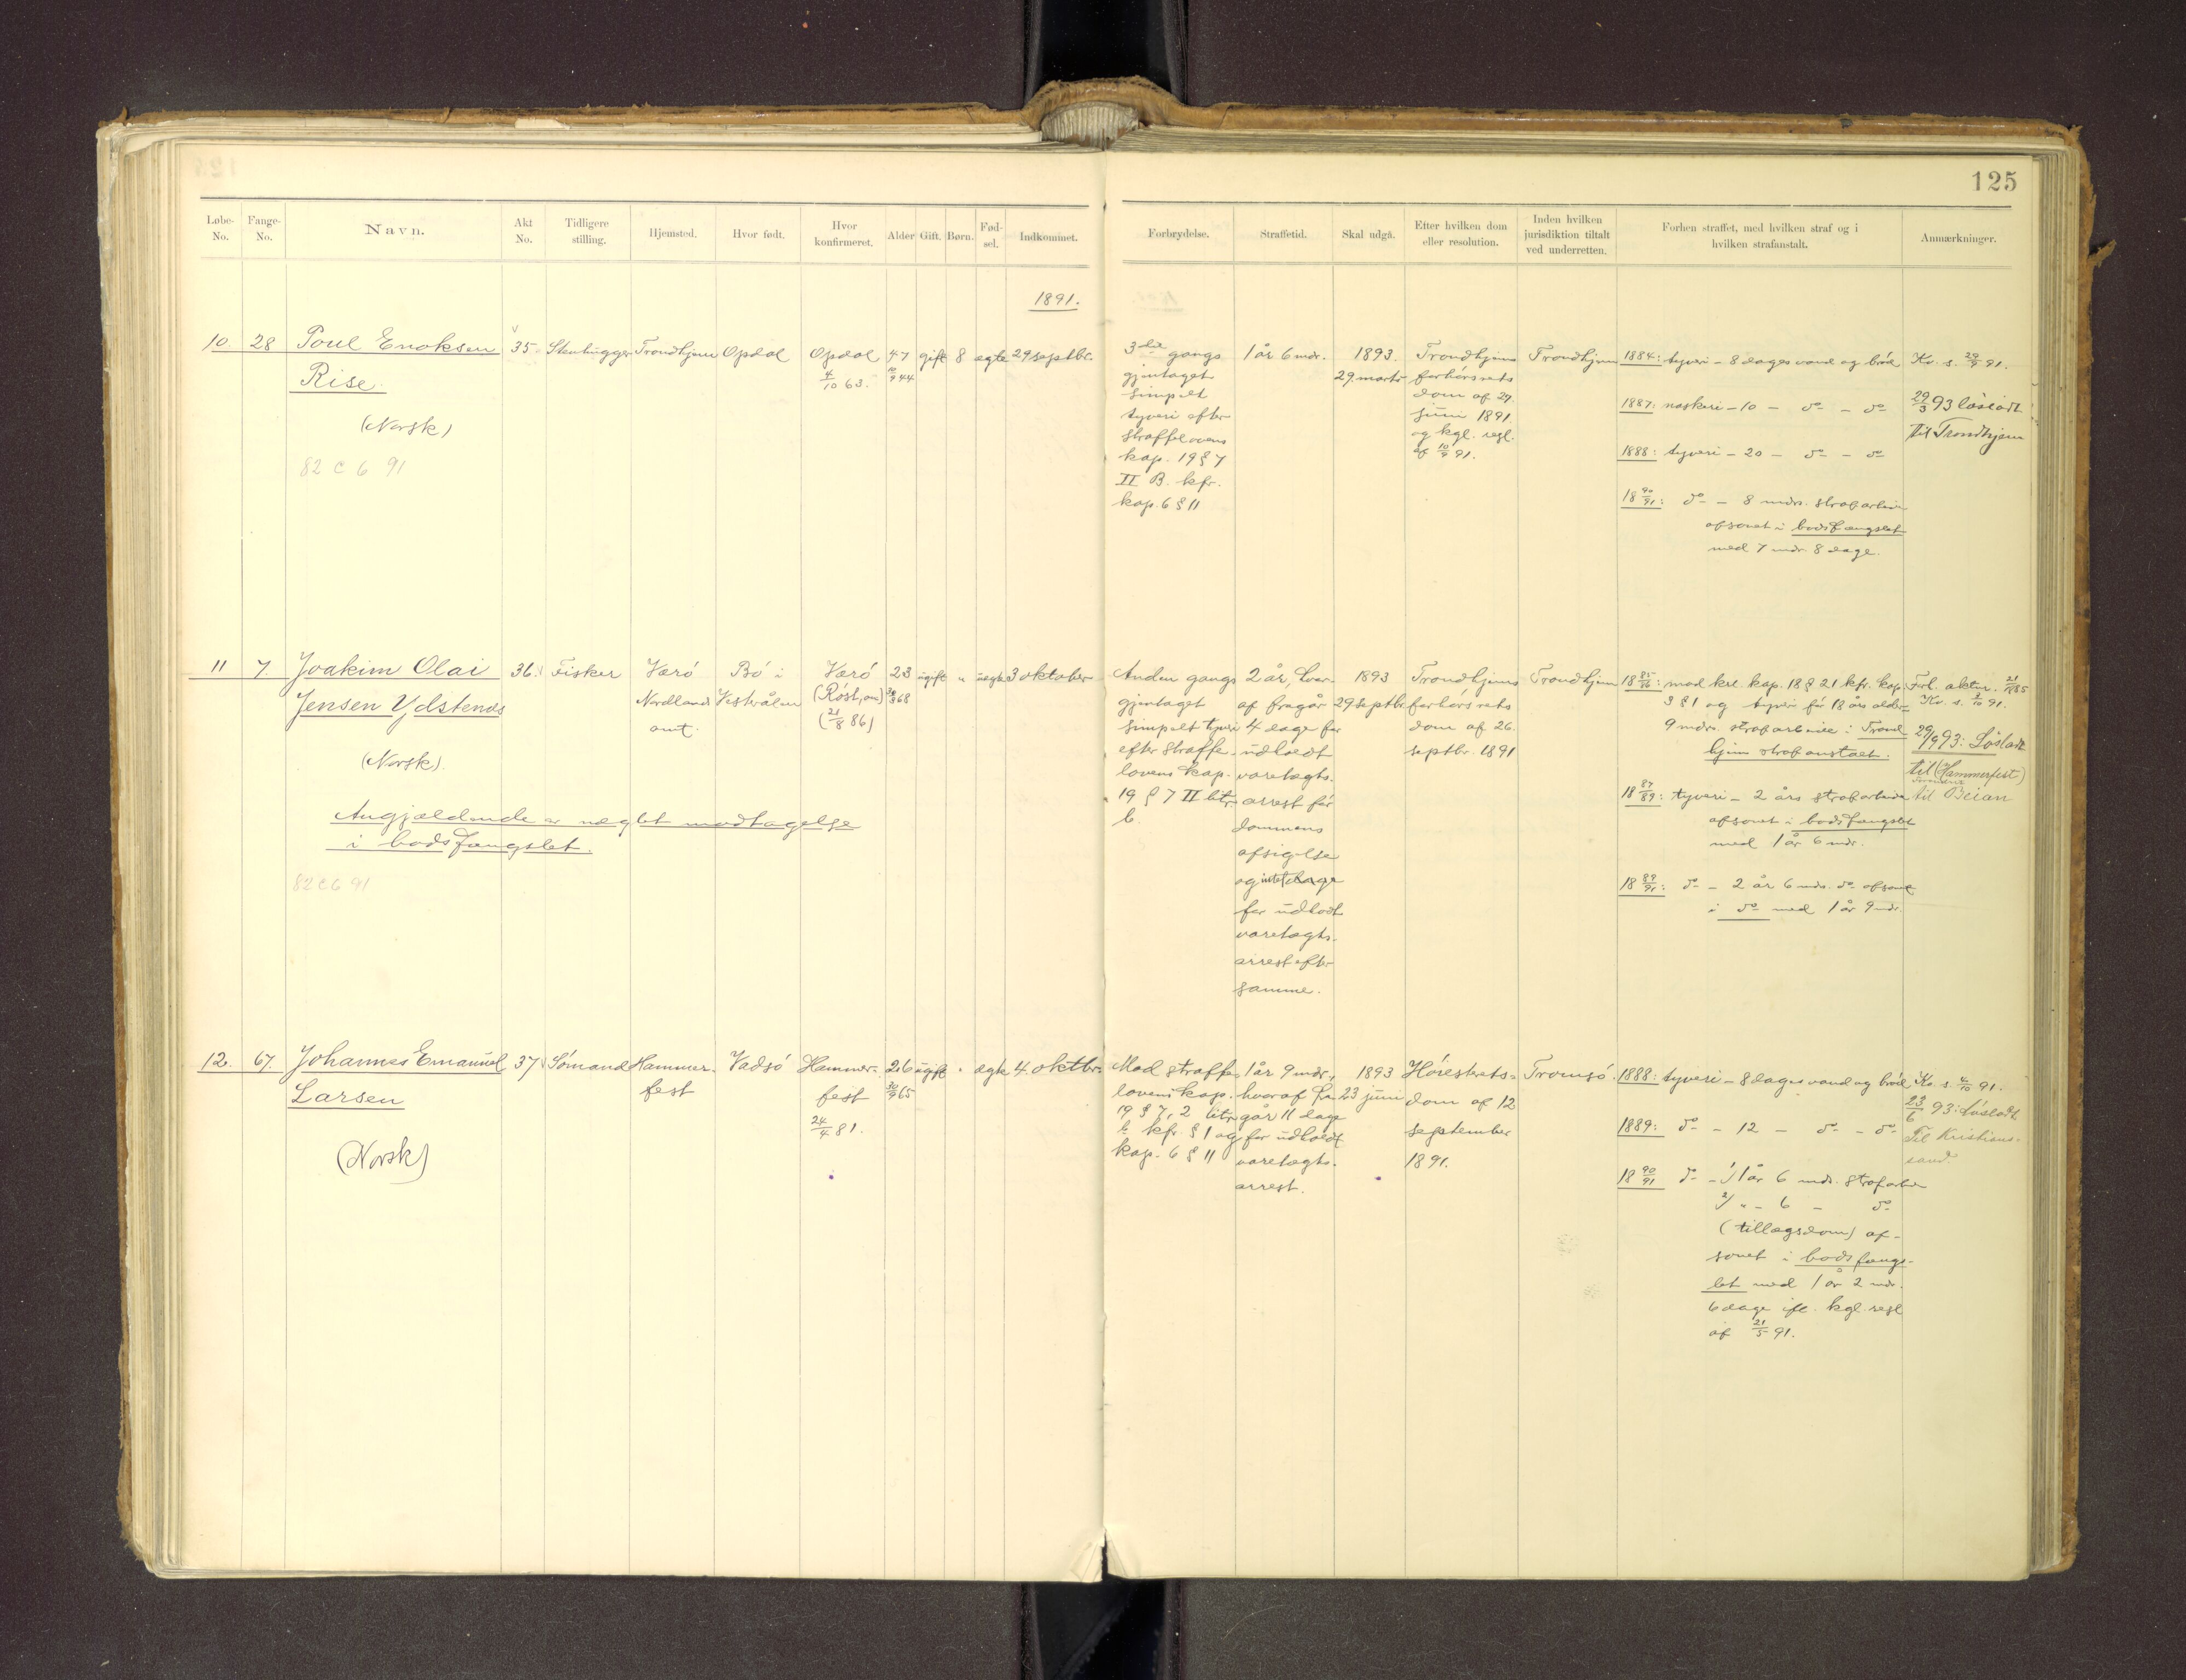 125
Løbe-No. Fange-No. Navn. Akt No. Tidligere stilling. Hjemsted. Hvor født. Hvor konfirmeret. Alder Gift. Børn. Fød-sel. Indkommet. Forbrydelse. Straffetid. Skal udgå. Efter hvilken dom eller resolution. Inden hvilken jurisdiktion tiltalt ved underretten. Forhen straffet, med hvilken straf og i hvilken strafanstalt. Anmærkninger.
1891.
10. 28 Poul Enoksen 35. Stenhugger Trondhjem Opdal Opdal 47 gift 8 ægte 29 septbr.
Rise. 4/10 63. 10/9 44
(Norsk)
82 C 6 91
3die gangs
gjentaget
simpelt
tyveri efter
straffelovens
kap. 19 § 7
II B. kfr.
kap. 6 § 11
1 år 6 mdr.
1893.
29 marts
Trondhjems
forhørsrets
dom af 29.
juni 1891
og kgl. resl.
af 10/9 91.
Trondhjem
1884: tyveri - 8 dages vand og brød
1887: naskeri - 10 - do - do
1888: tyveri - 20 - do - do
18 90/91: do - 8 mdrs. strafarbeide
afsonet i bodsfængslet
med 7 mdr. 8 dage.
Kv. s. 29/9 91.
29/3 93 løsladt
til Trondhjem
11 7. Joakim Olai 36. Fisker Værø Bø i Værø 23 ugift " uægte 3 oktober
Jensen Ydstenes Nordlands Vesterålen (Røst, an)
amt. (21/8 86)
(Norsk).
Angjældende er nægtet modtagelse
i bodsfængslet.
82 C 6 91
Anden gangs
gjentaget
simpelt tyveri
efter straffe-
lovens kap.
19 § 7 II litr.
b.
2 år, hvor-
af fragår
4 dage for
udholdt
varetægts-
arrest før
dommens
afsigelse
og intet dage
for udholdt
varetægts-
arrest efter
samme.
1893
29 septbr.
Trondhjems
forhørsrets
dom af 26.
septbr. 1891
Trondhjem
18 85/86: mod krl. kap. 18 § 21 kfr. kap.
3 § 1 og tyveri før 18 års alder
9 mdrs. strafarbeide i Trond
hjem strafanstalt.
18 87/89: tyveri - 2 års strafarbeide
afsonet i bodsfængslet
med 1 år 6 mdr.
18 89/91: do - 2 år 6 mdr. do afsonet
i do med 1 år 9 mdr.
Kv. s. 3/10 91.
29/9 93: Løsladt
til (Hammerfest)
til Beian
12. 67. Johannes Emanuel 37 Sømand Hammer- Vadsø Hammer- 26 ugift " ægte 4. oktbr.
Larsen fest fest 30/9 65
24/4 81.
(Norsk)
Mod straffe-
lovens kap.
19 § 7, 2 litr.
b kfr. § 1 og
kap. 6 § 11
1 år 9 mdr.,
hvoraf fra
går 11 dage
for udholdt
varetægts-
arrest.
1893
23 juni
Høiesterets-
dom af 12
september
1891.
Tromsø.
1888: tyveri - 8 dages vand og brød
1889: do - 12 - do - do
18 90/91 do - 1/ 1 år 6 mdr. strafarbei
2/ " - 6 - do
(tillægsdom) af-
sonet i bodsfængs-
let med 1 år 2 mdr.
6 dage ifl. kgl. resl
af 21/5 91.
Kv. s. 4/10 91.
23/6 93: Løsladt
Til Kristians-
sand.